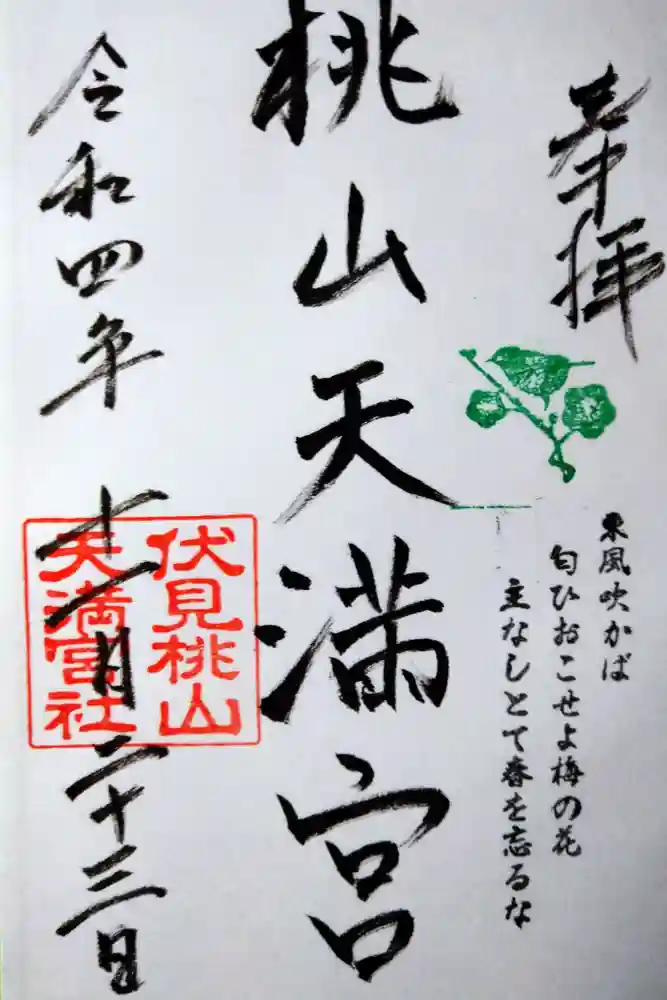 奉拝
東風吹かば
匂ひおこせよ梅の花
主なしとて春を忘るな
桃山天満宮
伏見桃山
天満宮社
令和四年十一月二十三日